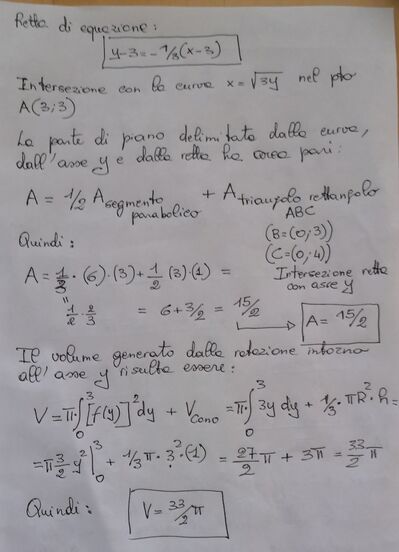 Retta di equazione:
y-3=-1/3(x-3)
Intersezione con la curva x=√3y nel pto
A(3;3)
La parte di piano delimitata dalla curva,
dall'asse y e dalla retta ha area pari:
A = 1/2 A segmento parabolico + A triangolo rettangolo ABC
(B=(0;3))
(C=(0;4))
Quindi:
Intersezione retta con asse y
A = 1/3 · (6)·(3) + 1/2 (3)·(1) =
" 1/2 · 2/3
= 6 + 3/2 = 15/2
A = 15/2
Il volume generato dalla rotazione intorno
all'asse y risulta essere:
V = π·∫₀³ [f(y)]² dy + V cono = π·∫₀³ 3y dy + 1/3·πR²·h =
= π 3/2 y² |₀³ + 1/3 π·3²·(1) = 27/2 π + 3π = 33/2 π
Quindi: V = 33/2 π